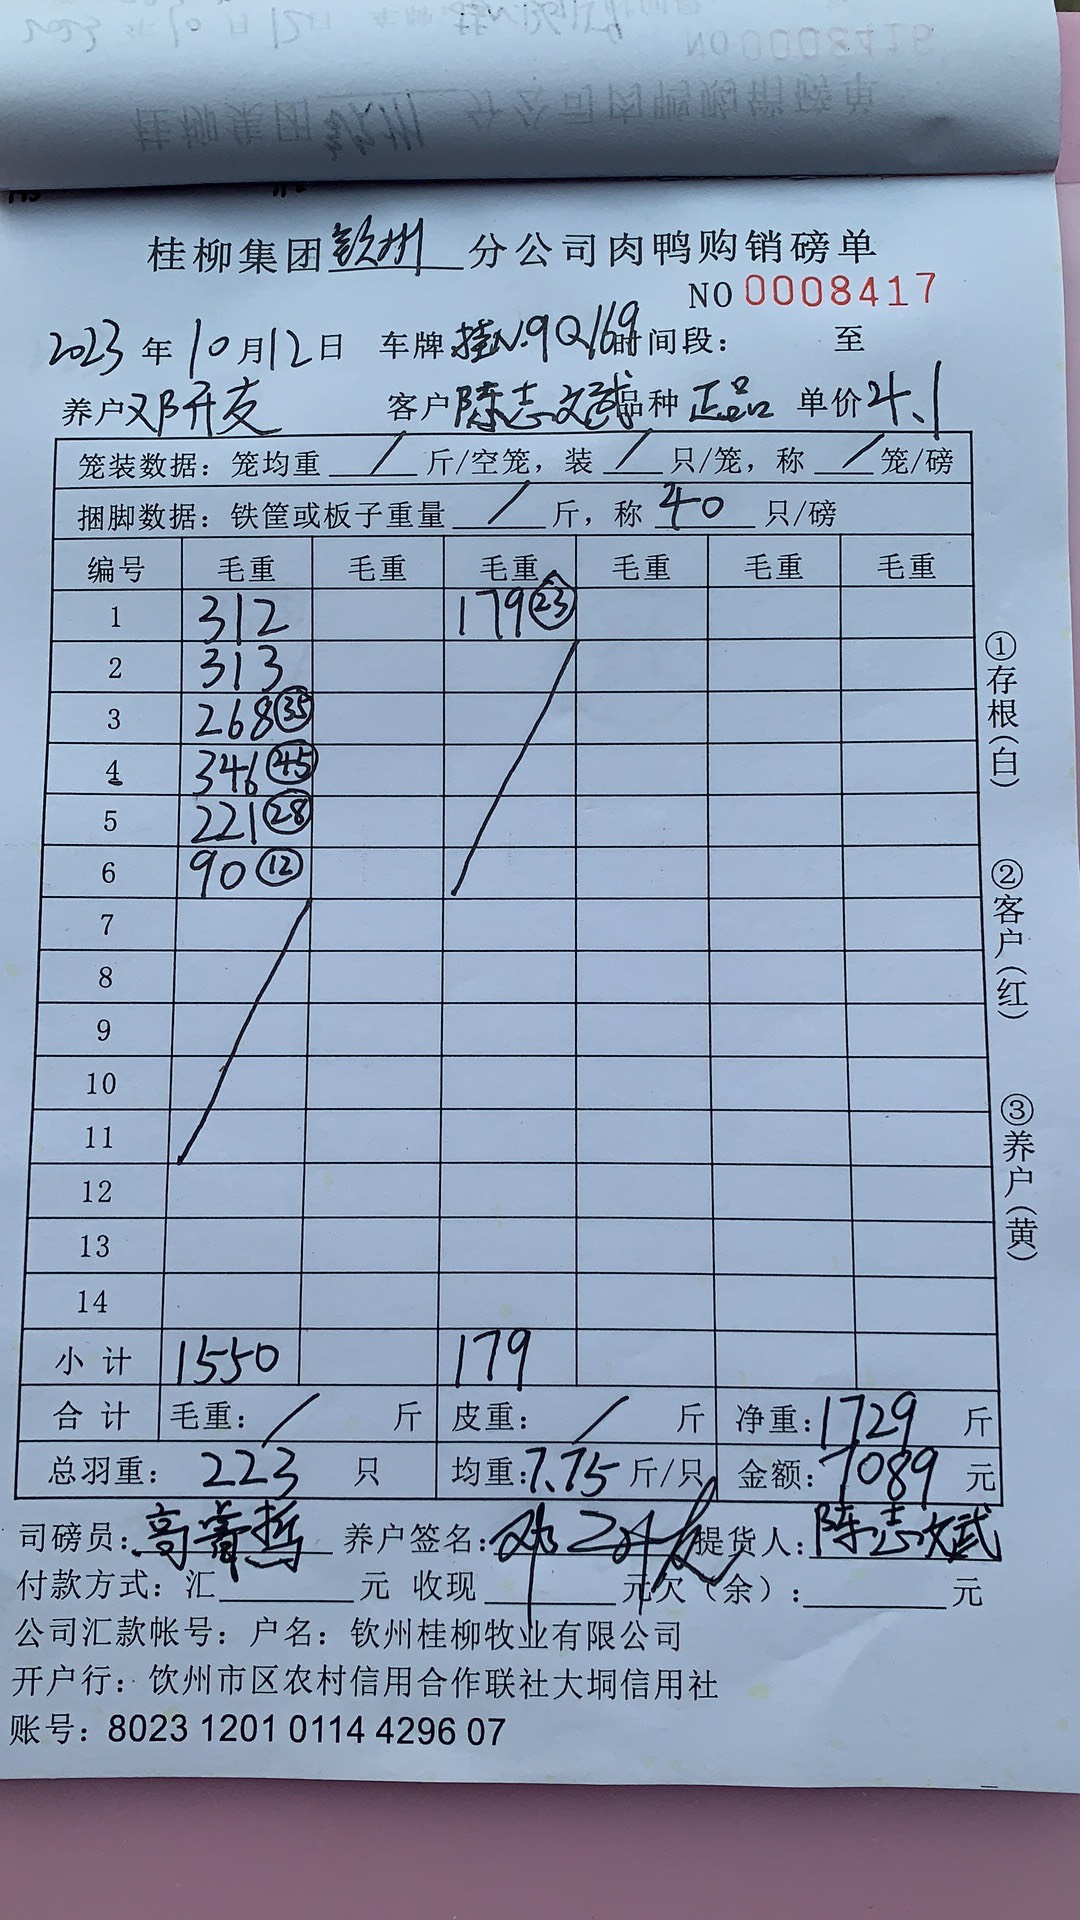 桂柳集团钦州分公司肉鸭购销磅单
NO 0008417
2023年10月12日 车牌:桂N.9Q169 时间段: 至
养户邓开友 客户陈志斌 品种 正品 单价4.1
笼装数据:笼均重 / 斤/空笼,装 / 只/笼,称 / 笼/磅
捆脚数据:铁筐或板子重量 / 斤,称 40 只/磅
编号 毛重 毛重 毛重 毛重 毛重 毛重
1 312 179 23
2 313
3 268 35
4 346 45
5 221 28
6 90 12
7
8
9
10
11
12
13
14
小计 1550 179
合计 毛重: / 斤 皮重: / 斤 净重:1729 斤
总羽重: 223 只 均重:7.75 斤/只 金额:7089 元
司磅员: 养户签名: 提货人:陈志斌
付款方式:汇 元 收现 元 欠(余): 元
公司汇款帐号:户名:钦州桂柳牧业有限公司
开户行:饮州市区农村信用合作联社大垌信用社
账号:8023 1201 0114 4296 07
①存根(白)
②客户(红)
③养户(黄)